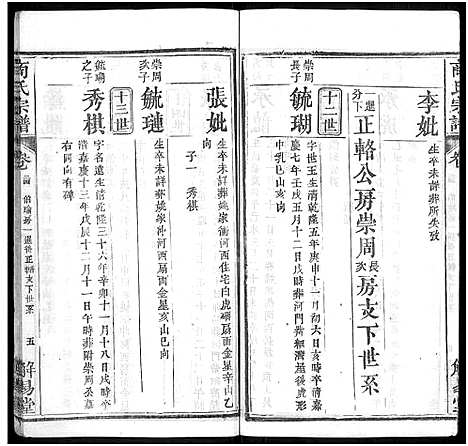 商氏宗譜
卷
李妣
生卒未詳葬所失攷
一選分下
正輅公房崇周長亥房支下世系
十二世
崇周長子
毓瑚
字世玉生清乾隆五年庚申十一月初六日亥時卒清嘉
慶十七年壬申五月十二日戌時葬河門黃細灣屋後虎形
中乳巳山亥向
崇周亥子
毓璉
生卒未詳葬姚家沖河西扇面金星亥山巳向
張妣
生卒未詳葬姚家衝河西住宅白虎腦扇面金星辛山乙
向
子一 秀棋
十三世
毓瑚之子
秀棋
字名遠生清乾隆三十六年辛卯十一月十八日戌時卒
清嘉慶十三年戊辰十二月十一日午時葬附崇周公墓
右同向有碑
商氏宗譜
卷
五
解易堂